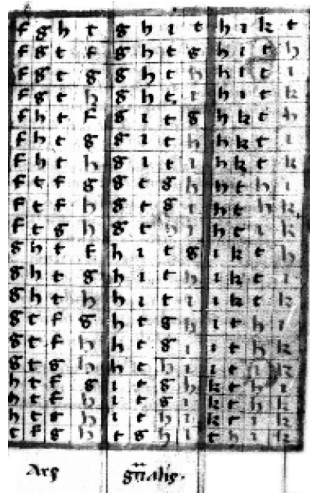 f g h t g h i t h i k t
f g t f g h t g h i t h
f g t g g h t h h i t i
f g t h g h t i h i t k
f h t f g i t g h k t h
f h t g g i t h h k t i
f h t h g i t i h k t k
f t f g g t g h h t h i
f t f h g t g i h t h k
f t g h g t h i h t i k
g h t f h i t g i k t h
g h t g h i t h i k t i
g h t h h i t i i k t k
g t f g h t g h i t h i
g t f h h t g i i t h k
g t g h h t h i i t i k
h t f g i t g h k t h i
h t f h i t g i k t h k
h t g h i t h i k t i k
t f g h t g h i t h i k
Ars gnalis.